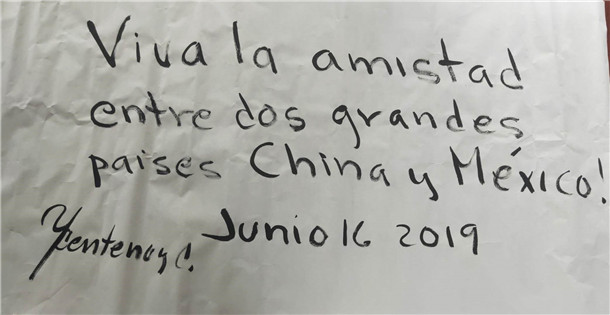 Viva la amistad
entre dos grandes
paises China y México!
Ycentenoy C. Junio 16 2019